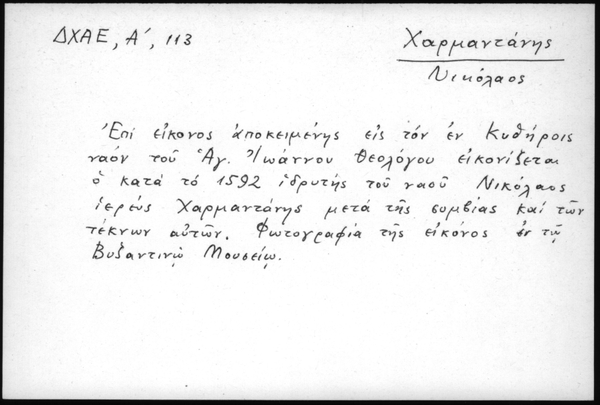 ΔΧΑΕ, Α΄, 113
Χαρμαντάνης
Νικόλαος
Ἐπί εἰκονος ἀποκειμένης εἰς τόν ἐν Κυθήροις
ναόν τοῦ Ἁγ. Ἰωάννου Θεολόγου εἰκονίζεται
ὁ κατά τό 1592 ἱδρυτής τοῦ ναοῦ Νικόλαος
ἱερεύς Χαρμαντάνης μετά τῆς συμβίας καί τῶν
τέκνων αὐτῶν. Φωτογραφία τῆς εἰκόνος ἐν τῷ
Βυζαντινῷ Μουσείῳ.